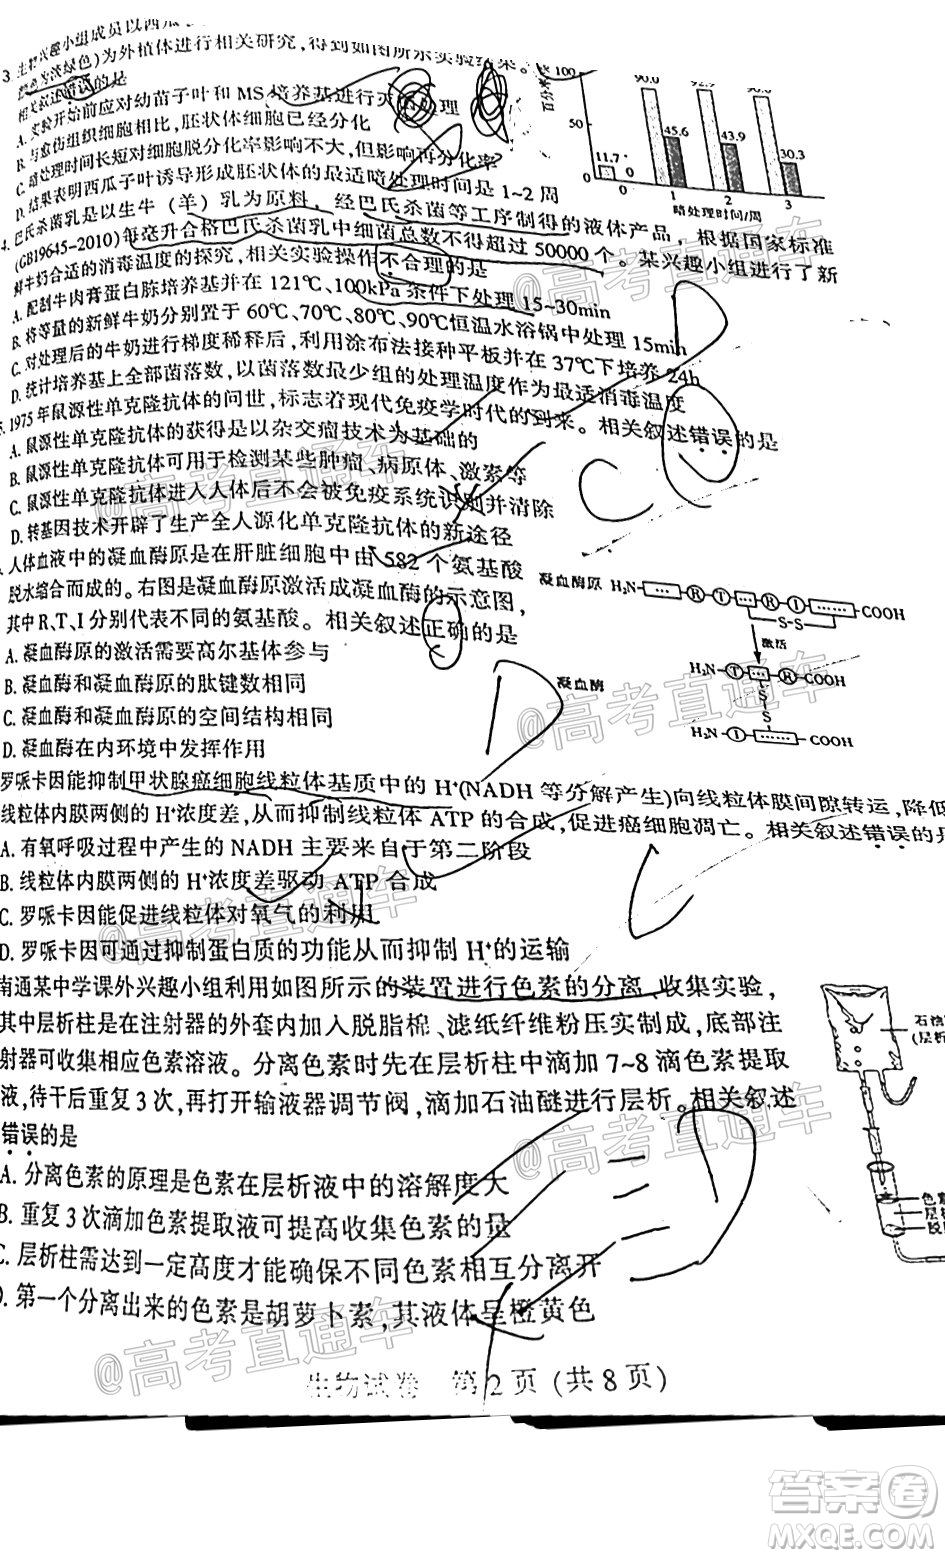 3. 生物兴趣小组成员以西瓜
颜色为淡绿色)为外植体进行相关研究，得到如图所示实验结果。
相关叙述错误的是
A. 实验开始前应对幼苗子叶和MS培养基进行灭菌处理
B. 与愈伤组织细胞相比，胚状体细胞已经分化
C. 暗处理时间长短对细胞脱分化率影响不大，但影响再分化率
D. 结果表明西瓜子叶诱导形成胚状体的最适暗处理时间是1~2周
100
50
0
百分
11.7
0
90.0
45.6
92.9
43.9
90.0
30.3
0
1
2
3
暗处理时间/周
4. 巴氏杀菌乳是以生牛（羊）乳为原料，经巴氏杀菌等工序制得的液体产品，根据国家标准
(GB19645-2010)每毫升合格巴氏杀菌乳中细菌总数不得超过50000个。某兴趣小组进行了新
鲜牛奶合适的消毒温度的探究，相关实验操作不合理的是
A. 配制牛肉膏蛋白胨培养基并在121℃、100kPa条件下处理15~30min
B. 将等量的新鲜牛奶分别置于60℃、70℃、80℃、90℃恒温水浴锅中处理15min
C. 对处理后的牛奶进行梯度稀释后，利用涂布法接种平板并在37℃下培养24h
D. 统计培养基上全部菌落数，以菌落数最少组的处理温度作为最适消毒温度
5. 1975年鼠源性单克隆抗体的问世，标志着现代免疫学时代的到来。相关叙述错误的是
A. 鼠源性单克隆抗体的获得是以杂交瘤技术为基础的
B. 鼠源性单克隆抗体可用于检测某些肿瘤、病原体、激素等
C. 鼠源性单克隆抗体进入人体后不会被免疫系统识别并清除
D. 转基因技术开辟了生产全人源化单克隆抗体的新途径
人体血液中的凝血酶原是在肝脏细胞中由582个氨基酸
脱水缩合而成的。右图是凝血酶原激活成凝血酶的示意图，
其中R、T、I分别代表不同的氨基酸。相关叙述正确的是
A. 凝血酶原的激活需要高尔基体参与
B. 凝血酶和凝血酶原的肽键数相同
C. 凝血酶和凝血酶原的空间结构相同
D. 凝血酶在内环境中发挥作用
凝血酶原 H₂N R T R I COOH
S-S
激活
H₂N T R COOH
凝血酶
S
S
H₂N I COOH
罗哌卡因能抑制甲状腺癌细胞线粒体基质中的H⁺(NADH等分解产生)向线粒体膜间隙转运，降低
线粒体内膜两侧的H⁺浓度差，从而抑制线粒体ATP的合成，促进癌细胞凋亡。相关叙述错误的是
A. 有氧呼吸过程中产生的NADH主要来自于第二阶段
B. 线粒体内膜两侧的H⁺浓度差驱动ATP合成
C. 罗哌卡因能促进线粒体对氧气的利用
D. 罗哌卡因可通过抑制蛋白质的功能从而抑制H⁺的运输
南通某中学课外兴趣小组利用如图所示的装置进行色素的分离、收集实验，
其中层析柱是在注射器的外套内加入脱脂棉、滤纸纤维粉压实制成，底部注
射器可收集相应色素溶液。分离色素时先在层析柱中滴加7~8滴色素提取
液，待干后重复3次，再打开输液器调节阀，滴加石油醚进行层析。相关叙述
错误的是
A. 分离色素的原理是色素在层析液中的溶解度大
B. 重复3次滴加色素提取液可提高收集色素的量
C. 层析柱需达到一定高度才能确保不同色素相互分离开
D. 第一个分离出来的色素是胡萝卜素，其液体呈橙黄色
石油
(层析
色素
层析
脱脂
生物试卷 第2页（共8页）
@高考直通车
@高考直通车
@高考直通车
@高考直通车
@高考直通车
@高考直通车
@高考直通车
答案卷
MXQE.COM